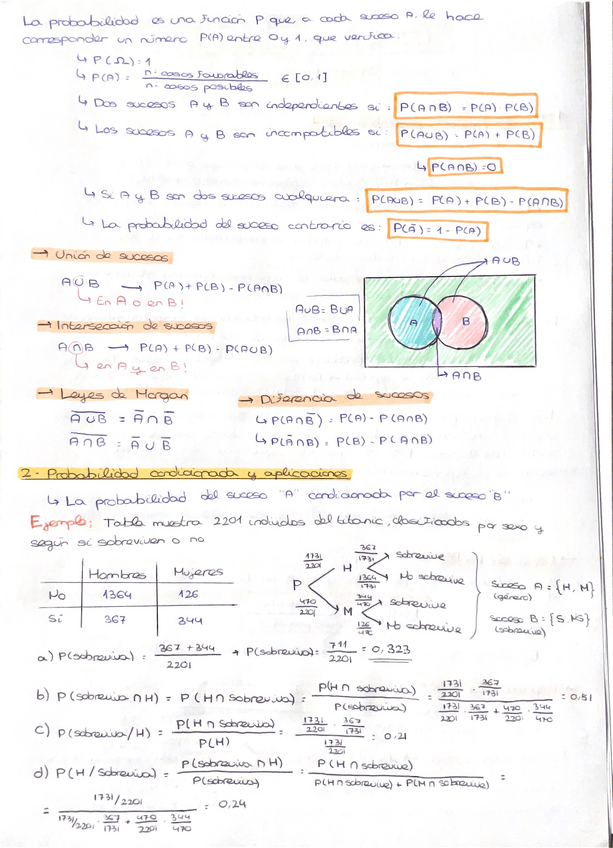 La probabilidad es una función P que a cada suceso A, le hace
corresponder un número P(A) entre 0 y 1, que verifica:
↳ P(Ω)=1
↳ P(A) = n· casos favorables / n· casos posibles ∈ [0,1]
↳ Dos sucesos A y B son independientes si: P(A∩B) = P(A) P(B)
↳ Los sucesos A y B son incompatibles si: P(A∪B) = P(A) + P(B)
↳ P(A∩B)=0
↳ Si A y B son dos sucesos cualquiera: P(A∪B) = P(A) + P(B) - P(A∩B)
↳ La probabilidad del suceso contrario es: P(Ā) = 1 - P(A)
→ Unión de sucesos
A∪B → P(A)+P(B) - P(A∩B)
↳ En A o en B!
→ Intersección de sucesos
A∩B → P(A) + P(B) - P(A∪B)
↳ en A y en B!
A∪B = B∪A
A∩B = B∩A
A∪B
A B
A∩B
→ Leyes de Morgan
A̅∪̅B̅ = Ā∩B̅
A̅∩̅B̅ = Ā∪B̅
→ Diferencia de sucesos
↳ P(A∩B̅) = P(A) - P(A∩B)
↳ P(Ā∩B) = P(B) - P(A∩B)
2- Probabilidad condicionada y aplicaciones
↳ La probabilidad del suceso "A" condicionada por el suceso "B"
Ejemplo: Tabla muestra 2201 individuos del titanic, clasificados por sexo y
según si sobreviven o no
Hombres Mujeres
No 1364 126
Sí 367 344
P
1731/2201 H
367/1731 sobrevive
1364/1731 No sobrevive
470/2201 M
344/470 sobrevive
126/470 No sobrevive
Suceso A = {H, M}
(género)
Suceso B = {S, NS}
(sobrevive)
a) P(sobreviva) = 367 + 344 / 2201 → P(sobreviva) = 711/2201 = 0,323
b) P(sobreviva ∩ H) = P(H ∩ sobreviva) = P(H ∩ sobreviva) / P(sobrevive) = (1731/2201 · 367/1731) / (1731/2201 · 367/1731 + 470/2201 · 344/470) = 0,51
c) P(sobreviva/H) = P(H ∩ sobreviva) / P(H) = (1731/2201 · 367/1731) / (1731/2201) = 0,21
d) P(H/sobreviva) = P(sobreviva ∩ H) / P(sobreviva) = P(H ∩ sobrevive) / P(H∩sobrevive) + P(M∩sobrevive) =
= 1731/2201 / (1731/2201 · 367/1731 + 470/2201 · 344/470) = 0,24